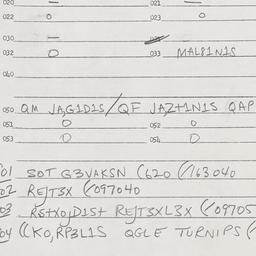 020 — 021 —
022 o 023 o
030 — 031
032 o 033 MAL81N1S
040
050 QM JA,G1D1S/QF JAZ+1N1S QAP
051 o 052 o
053 o 054 o
01 SOT G3VAKSN (620 (/163040
02 REJT3X (/097040
03 RS+XOJD1S+ REJT3XL3X (/09705
04 ((KO,RP3L1S QGLE TURNIPS (/